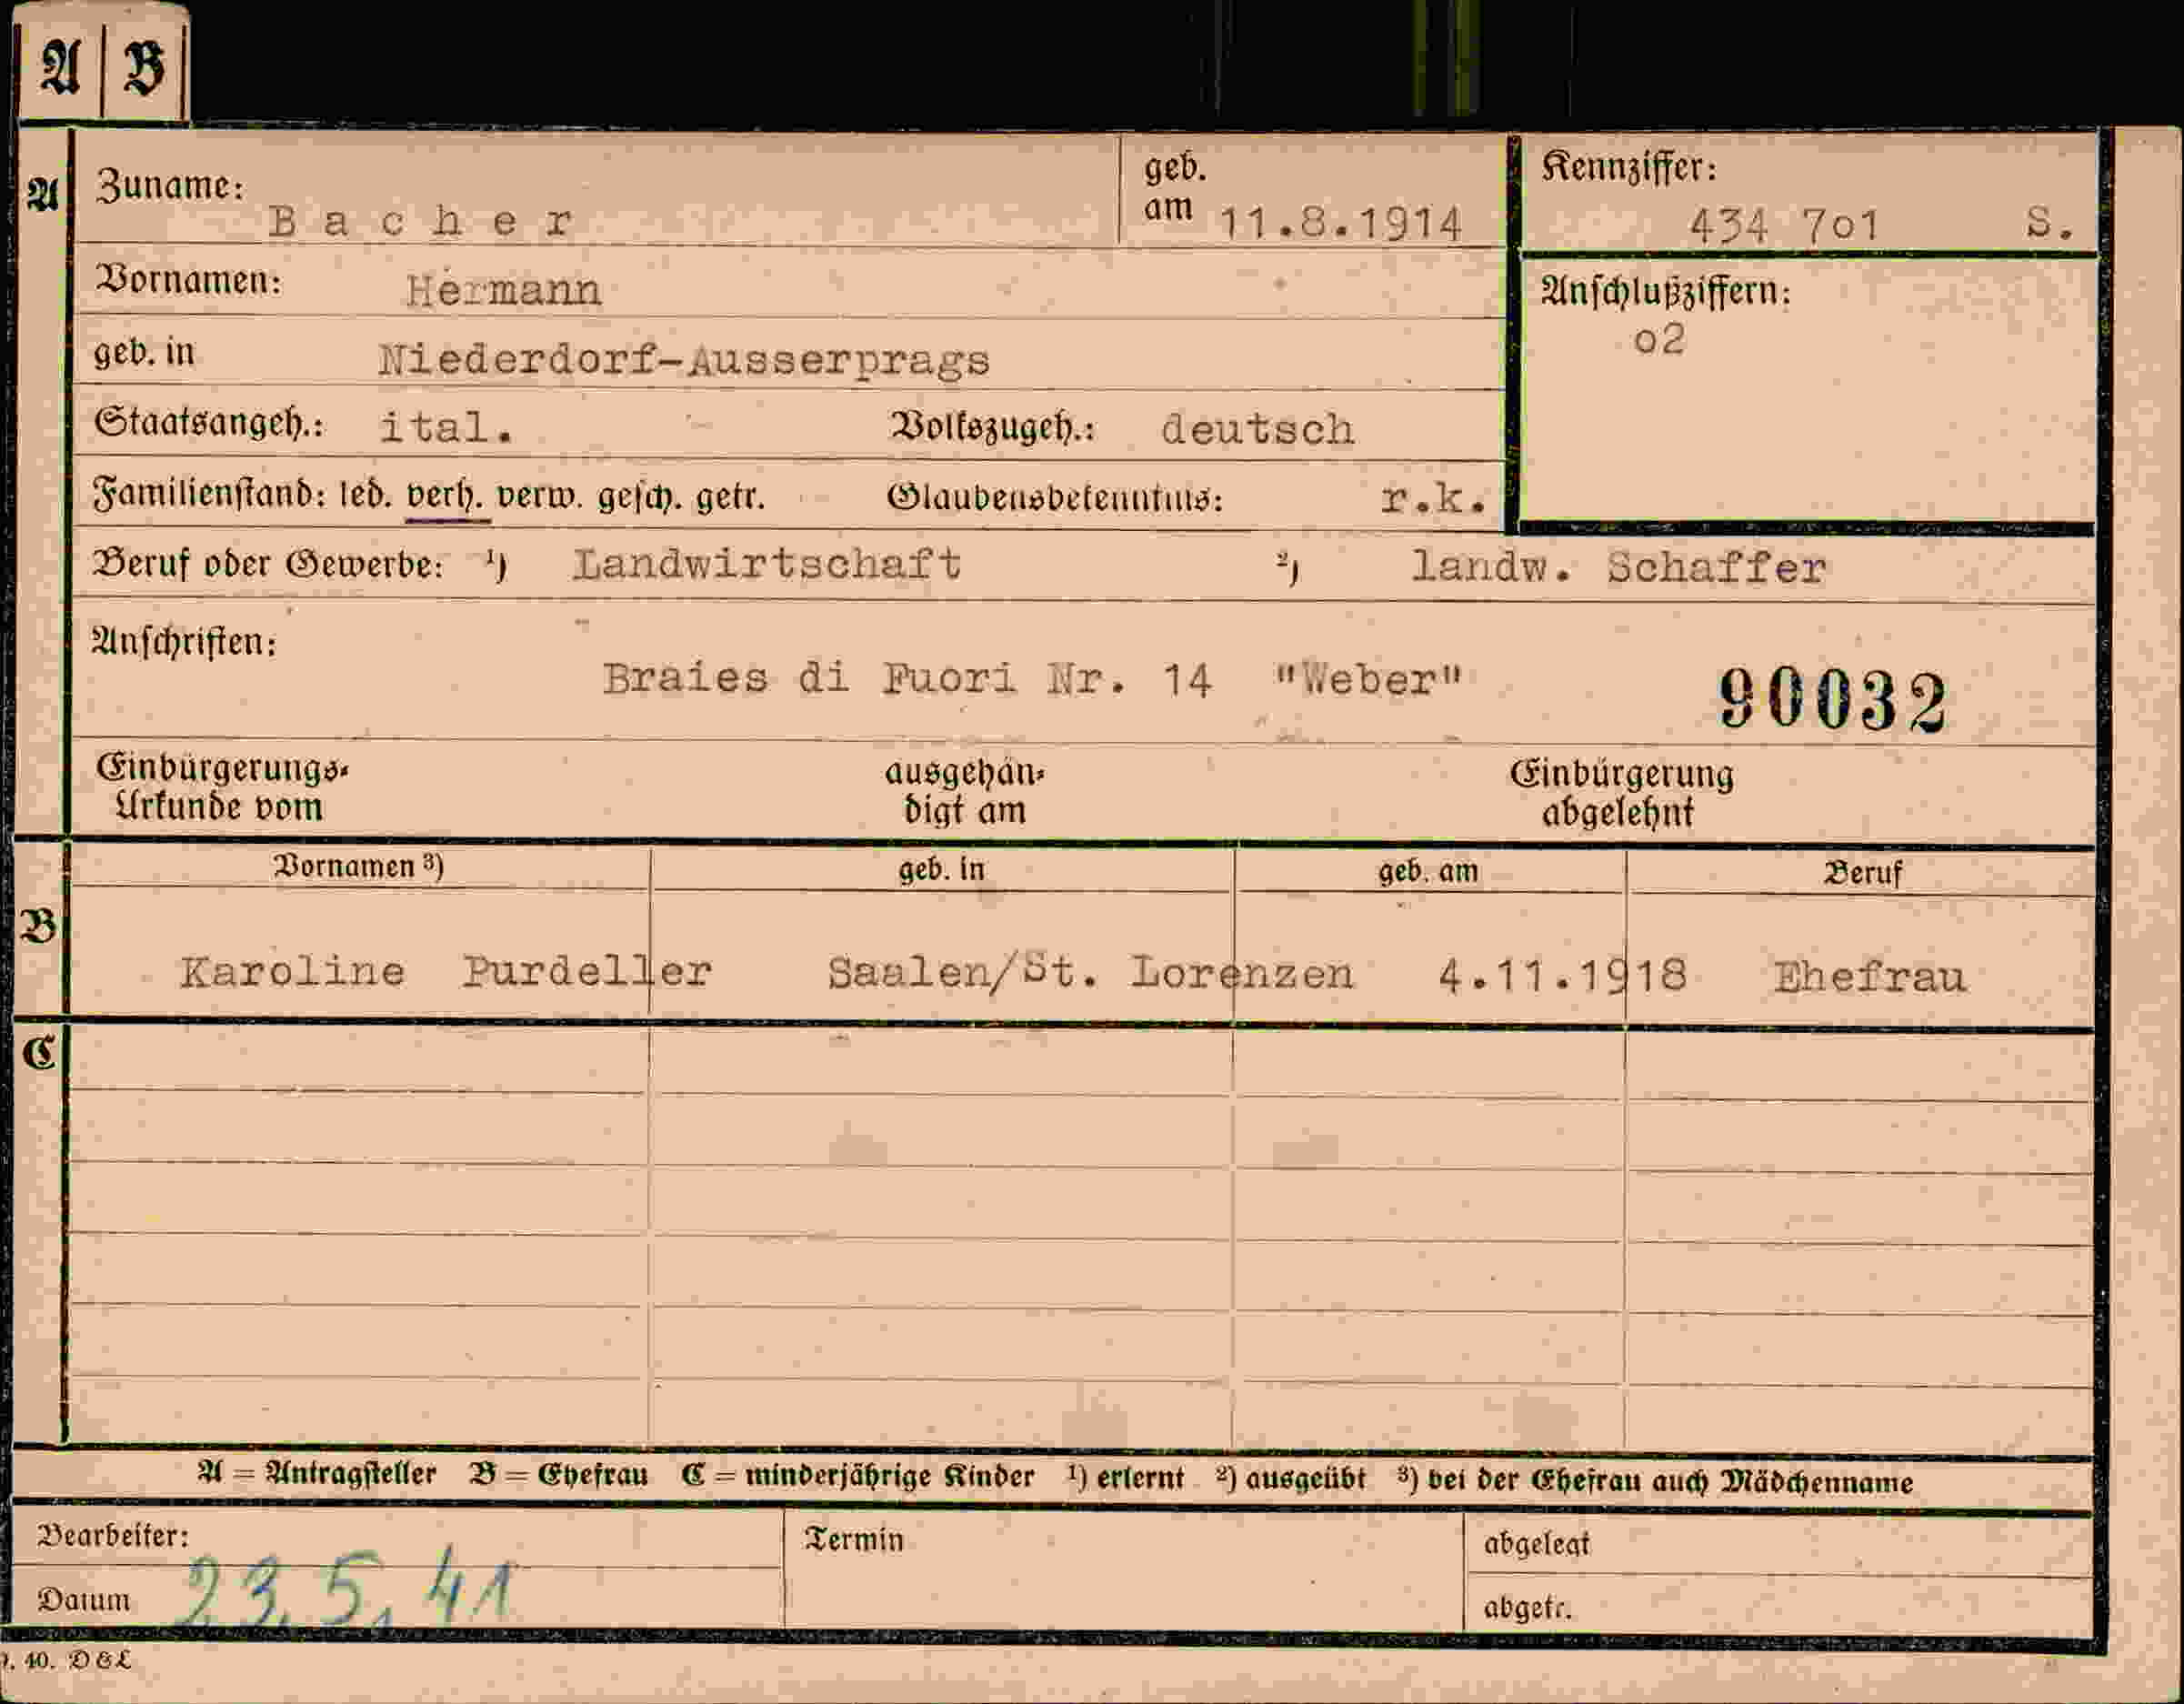 A B
A Zuname: Bacher geb. am 11.8.1914 Kennziffer: 434 7o1 S.
Vornamen: Hermann
Anschlußziffern: o2
geb. in Niederdorf-Ausserprags
Staatsangeh.: ital. Volkszugeh.: deutsch
Familienstand: led. verh. verw. gesch. getr. Glaubensbekenntnis: r.k.
Beruf oder Gewerbe: ¹) Landwirtschaft ²) landw. Schaffer
Anschriften:
Braies di Fuori Nr. 14 "Weber" 90032
Einbürgerungs- ausgehän- Einbürgerung
Urkunde vom digt am abgelehnt
Vornamen ³) geb. in geb. am Beruf
B
Karoline Purdeller Saalen/St. Lorenzen 4.11.1918 Ehefrau
C
A = Antragsteller B = Ehefrau C = minderjährige Kinder ¹) erlernt ²) ausgeübt ³) bei der Ehefrau auch Mädchenname
Bearbeiter: Termin abgelegt
Datum 23.5.41 abgetr.
40. D&L